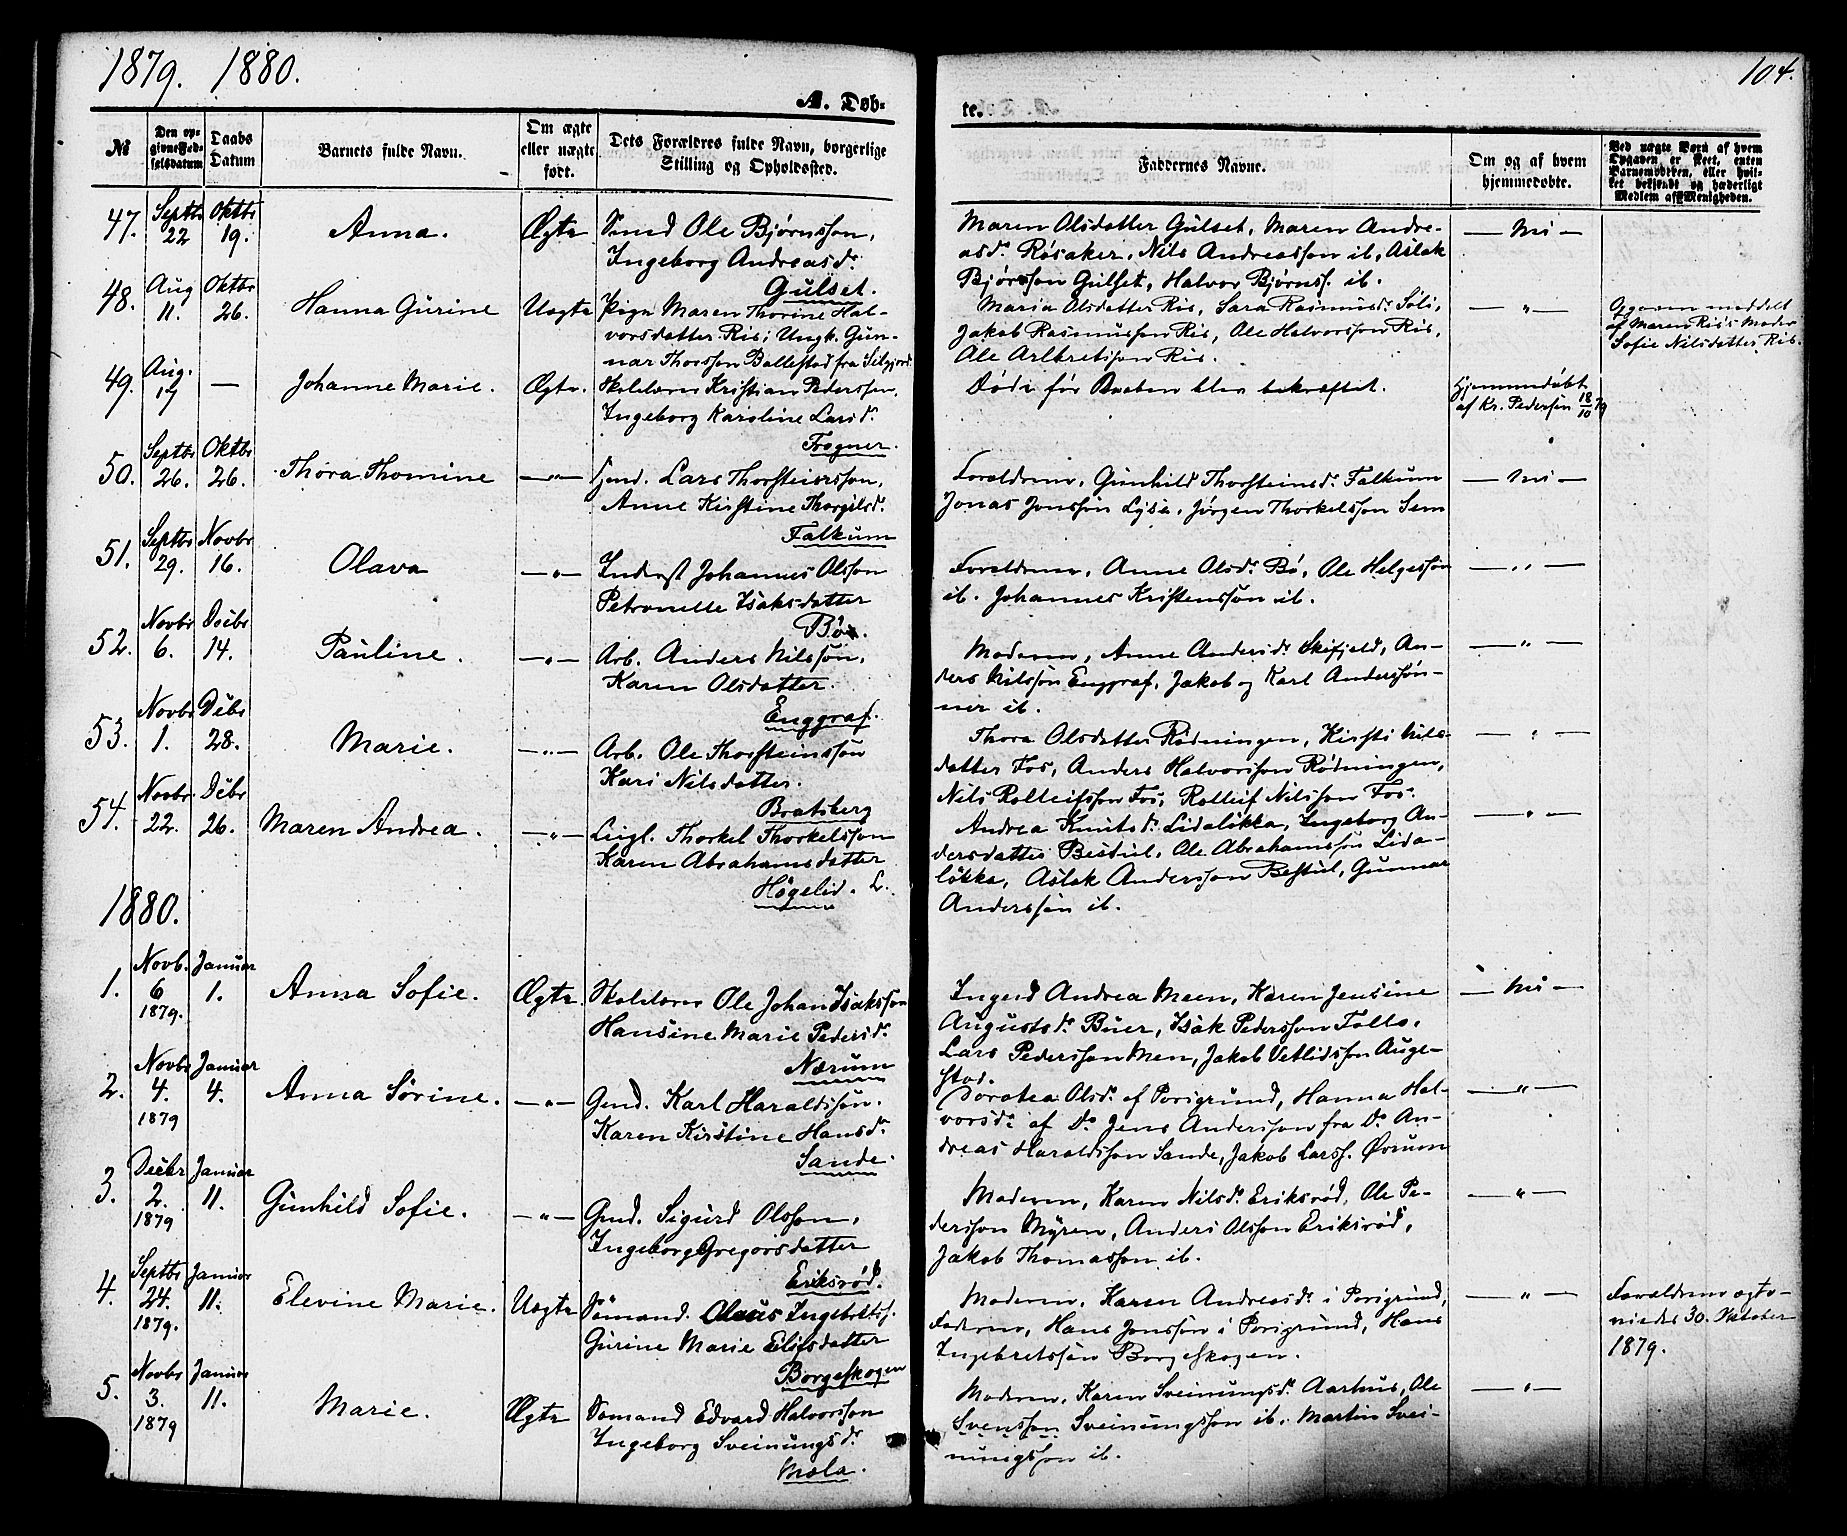 1879. 1880.
104.
A. Døb-
te.
No
Den op-
givne Fød-
selsdatum
Daabs
Datum
Barnets fulde Navn.
Om ægte
eller uægte
født.
Dets Forældres fulde Navn, borgerlige
Stilling og Opholdssted.
Faddernes Navne.
Om og af hvem
hjemmedøbte.
Ved uægte Børn af hvem
Opgaven er skeet, enten
Barnemoderen, eller hvil-
ket bekjendt og hæderligt
Medlem af Menigheden.
47. Septbr 22 Oktbr 19. Anna. Ægte Sømd Ole Bjørnsson,
Ingeborg Andreasdr
Gulset.
Maren Olsdatter Gulset, Maren Andre-
asdr Røsaker, Nils Andreasson ib, Aslak
Bjørnsson Gulset, Halvor Bjørnss. ib.
— Nei —
48. Aug 11. Oktbr 26. Hanna Gurine Uægte Pige Maren Thorine Hal-
vorsdatter Ris; Ungk. Gun-
nar Thorsson Ballestad fra Siljord
Maria Olsdatter Ris, Sara Rasmusdr Søli,
Jakob Rasmusson Ris, Ole Halvorsson Ris,
Ole Arlbretsson Ris.
— " —
Opgaven meddelt
af Maren Ris's Moder
Sofie Nilsdatter Ris.
49. Aug. 17 — Johanne Marie. Ægte. Skolelærer Kristian Pederssen,
Ingeborg Karoline Larsdr
Frogner.
Døde før Daaben blev bekræftet.
Hjemmedøbt
af Kr. Pedersen 18/10 79
50. Septbr 26. Oktbr 26. Thora Thomine — " — Gmd. Lars Thorsteinsson,
Anne Kirstine Thorgilsdr.
Falkum
Forældrene, Gunhild Thorsteinsdr Falkum
Jonas Jonssøn Lysa, Jørgen Thorkelsson Sem
— Nei —
51. Septbr 29. Novbr 16. Olava — " — Inderst Johannes Olson
Petronelle Isaksdatter
Bø.
Forældrene, Anne Olsdr Bø, Ole Helgessøn
ib. Johannes Kristenssøn ib.
— " —
52. Novbr 6. Debr 14. Pauline. — " — Arb. Anders Nilssøn,
Karen Olsdatter.
Enggraf.
Moderen, Anne Andersdr Skifjeld, An-
ders Nilssøn Enggraf, Jakob og Karl Anderssøn-
ner ib.
— " —
53. Novbr 1. Debr 28. Marie. — " — Arb. Ole Thorsteinssøn
Kari Nilsdatter.
Bratsberg
Thora Olsdatter Rødningen, Kirsti Nils-
datter Fos, Anders Halvorsson Rødningen,
Nils Rolleifsson Fos, Rolleif Nilsson Fos.
— " —
54. Novbr. 22. Debr 26. Maren Andrea. — " — Leigl. Thorkel Thorkelsson
Karen Abrahamsdatter
Høgelid. L.
Andrea Knutsdr Lidaløkka, Ingeborg An-
dersdatter Bestul, Ole Abrahamssøn Lida-
løkka, Aslak Andersson Bestul, Gunnar
Anderssøn ib.
— " —
1880.
1. Novb. 6 1879. Januar 1. Anna Sofie. Ægte Skolelærer Ole Johan Isakssøn
Hansine Marie Pedersdr
Nærum
Ingerd Andrea Meen, Karen Jensine
Augustsdr Buer, Isak Pederssøn Follo,
Lars Pedersson Men, Jakob Vetlidsson Auge-
stad.
— Nei —
2. Novbr 4. 1879 Januar 4. Anna Sørine. — " — Gmd. Karl Haraldssøn.
Karen Kirstine Hansdr
Sande.
Dorotea Olsdr af Porsgrund, Hanna Hal-
vorsdr af Do Jens Andersson fra Do An-
dreas Haraldsson Sande, Jakob Larss. Ørum
— " —
3. Decbr 2. 1879 Januar 11. Gunhild Sofie. — " — Gmd. Sigurd Olsson,
Ingeborg Gregorsdatter
Eriksrød.
Moderen, Karen Nilsdr Eriksrød, Ole Pe-
dersson Myren, Anders Olsson Eriksrød,
Jakob Thomasson ib.
— " —
4. Septbr 24. 1879. Januar 11. Elevine Marie. Uægte Sømand. Olaus Ingebretss.
Gurine Marie Eilifsdatter
Borgeskogen
Moderen, Karen Andreasdr i Porsgrund,
Faderen, Hans Jonssøn i Porsgrund, Hans
Ingebretssøn Borgeskogen.
— " —
Forældrene ægte-
viedes 30. Oktober
1879.
5. Novbr 3. 1879 Januar 11. Marie. Ægte Sømand Edvard Halvorsson
Ingeborg Sveinungsdr
Mæla.
Moderen, Karen Sveinungsdr Aarhus, Ole
Svensson Sveinungsson ib. Martin Svei-
nungsson ib.
— " —